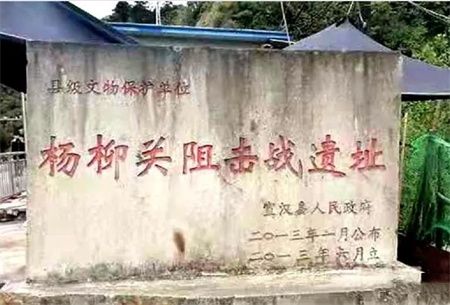 县级文物保护单位
杨柳关阻击战遗址
宣汉县人民政府
二〇一三年一月公布
二〇一三年六月立